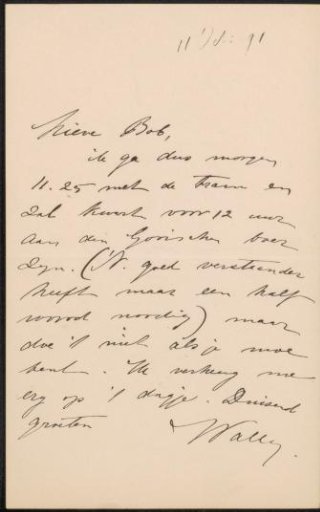 11 Oct: 91
Lieve Bob,
ik ga dus morgen
11.25 met de tram en
zal kwart voor 12 uur
aan den Gooischen boer
zijn. ('N. goed verstaander
heeft maar een half
woord noodig) maar
doe 't niet als je moe
bent. Ik verheug me
erg op 't dagje. Duizend
groeten
Wally.